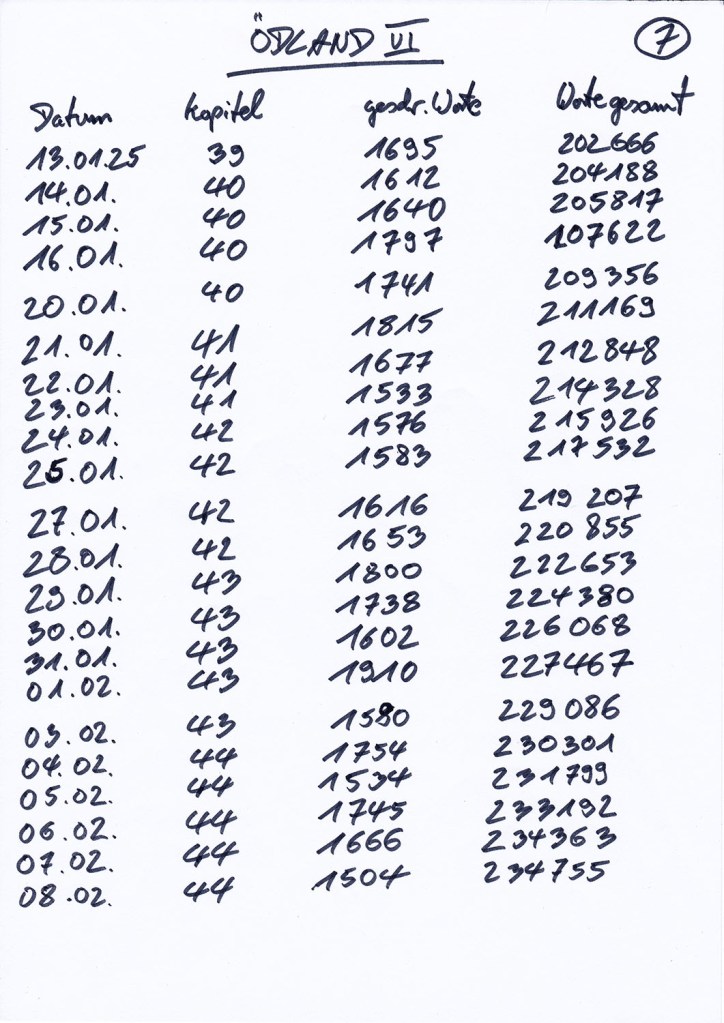 ÖDLAND VI
7
Datum Kapitel geschr. Worte Worte gesamt
13.01.25 39 1695 202666
14.01. 40 1612 204188
15.01. 40 1640 205817
16.01. 40 1797 107622
20.01. 40 1741 209356
21.01. 41 1815 211169
22.01. 41 1677 212848
23.01. 41 1533 214328
24.01. 42 1576 215926
25.01. 42 1583 217532
27.01. 42 1616 219 207
28.01. 42 1653 220 855
29.01. 43 1800 222653
30.01. 43 1738 224380
31.01. 43 1602 226 068
01.02. 43 1910 227467
03.02. 43 1580 229 086
04.02. 44 1754 230301
05.02. 44 1534 231799
06.02. 44 1745 233192
07.02. 44 1666 234363
08.02. 44 1504 234755